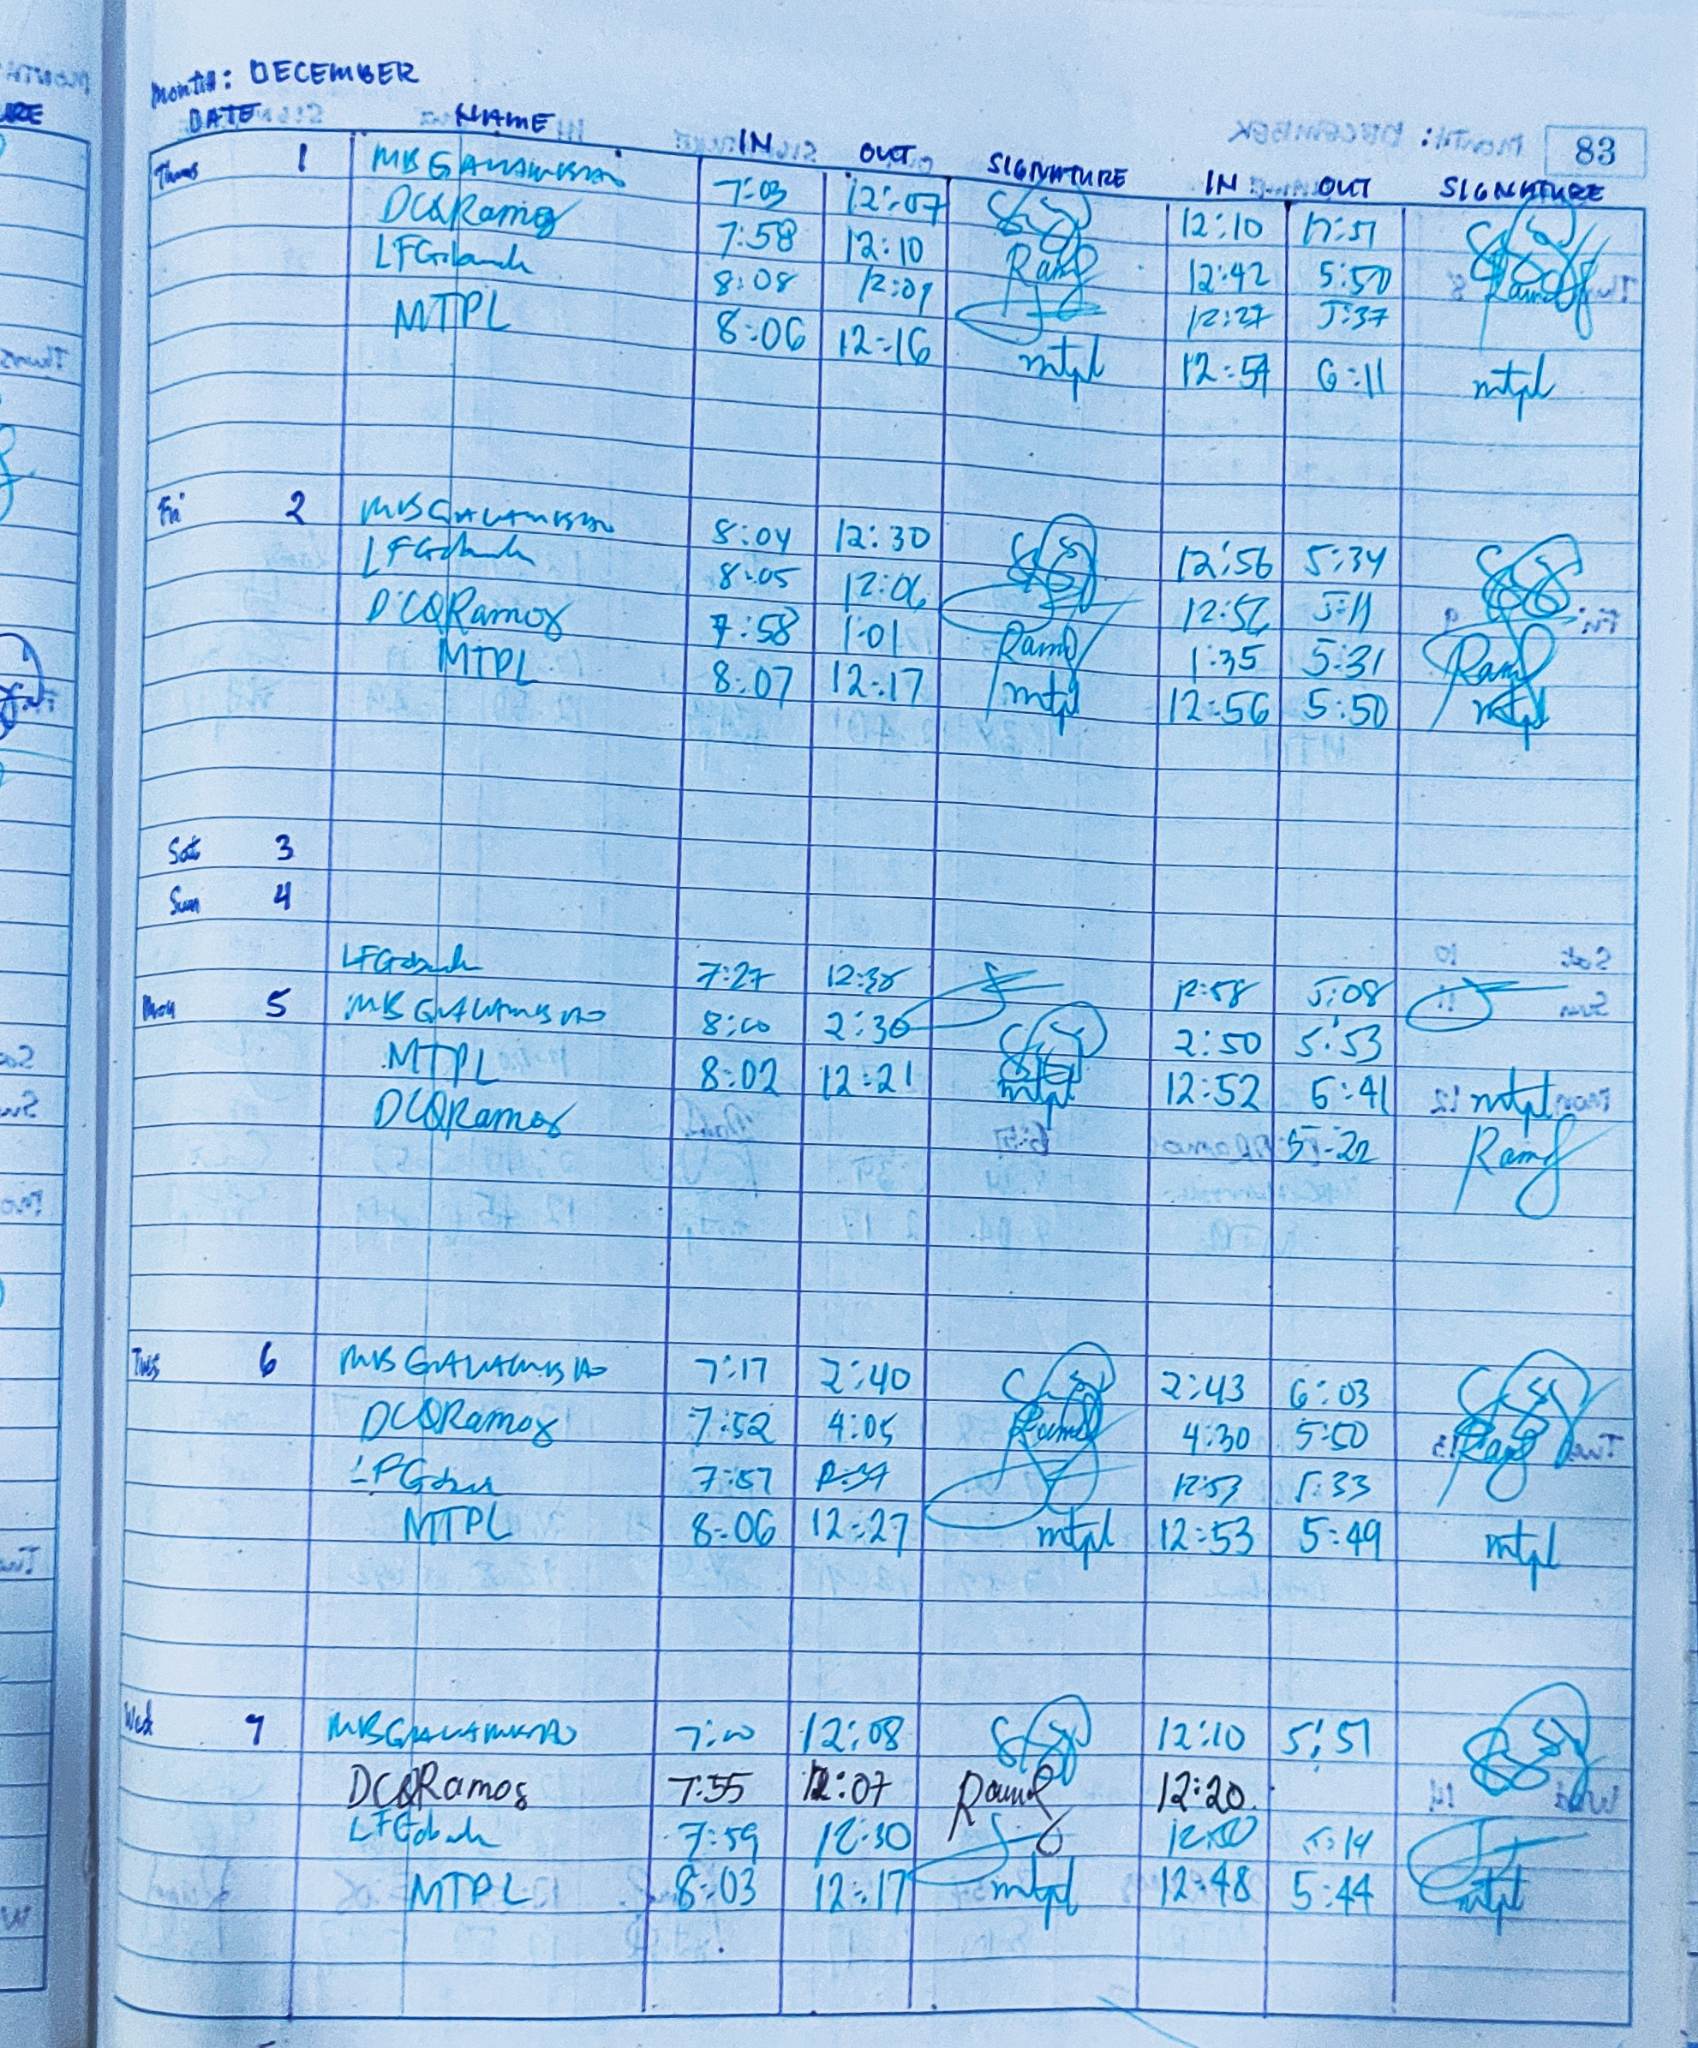 MONTH: DECEMBER
83
DATE NAME IN OUT SIGNATURE IN OUT SIGNATURE
Thurs 1 7:03 12:07 12:10
DCQRamos 7:58 12:10 Ramos 12:42 5:50 Ramos
8:08 12:09 12:27 5:37
MTPL 8:06 12:16 mtpl 12:54 6:11 mtpl
Fri 2 8:04 12:30 12:56 5:34
8:05 12:06 5:11
DCQRamos 7:58 1:01 Ramos 1:35 5:31 Ramos
MTPL 8:07 12:17 mtpl 12:56 5:50 mtpl
Sat 3
Sun 4
7:27 12:58 5:08
Mon 5 8:00 2:30 2:50 5:53
MTPL 8:02 12:21 mtpl 12:52 5:41 mtpl
DCQRamos 5:22 Ramos
Tues 6 7:17 2:40 2:43 6:03
DCQRamos 7:52 4:05 Ramos 4:30 5:50 Ramos
7:57 12:37 12:53 5:33
MTPL 8:06 12:27 mtpl 12:53 5:49 mtpl
Wed 7 7:00 12:08 12:10 5:51
DCQRamos 7:55 12:07 Ramos 12:20
7:59 12:30 5:14
MTPL 8:03 12:17 mtpl 12:48 5:44 mtpl